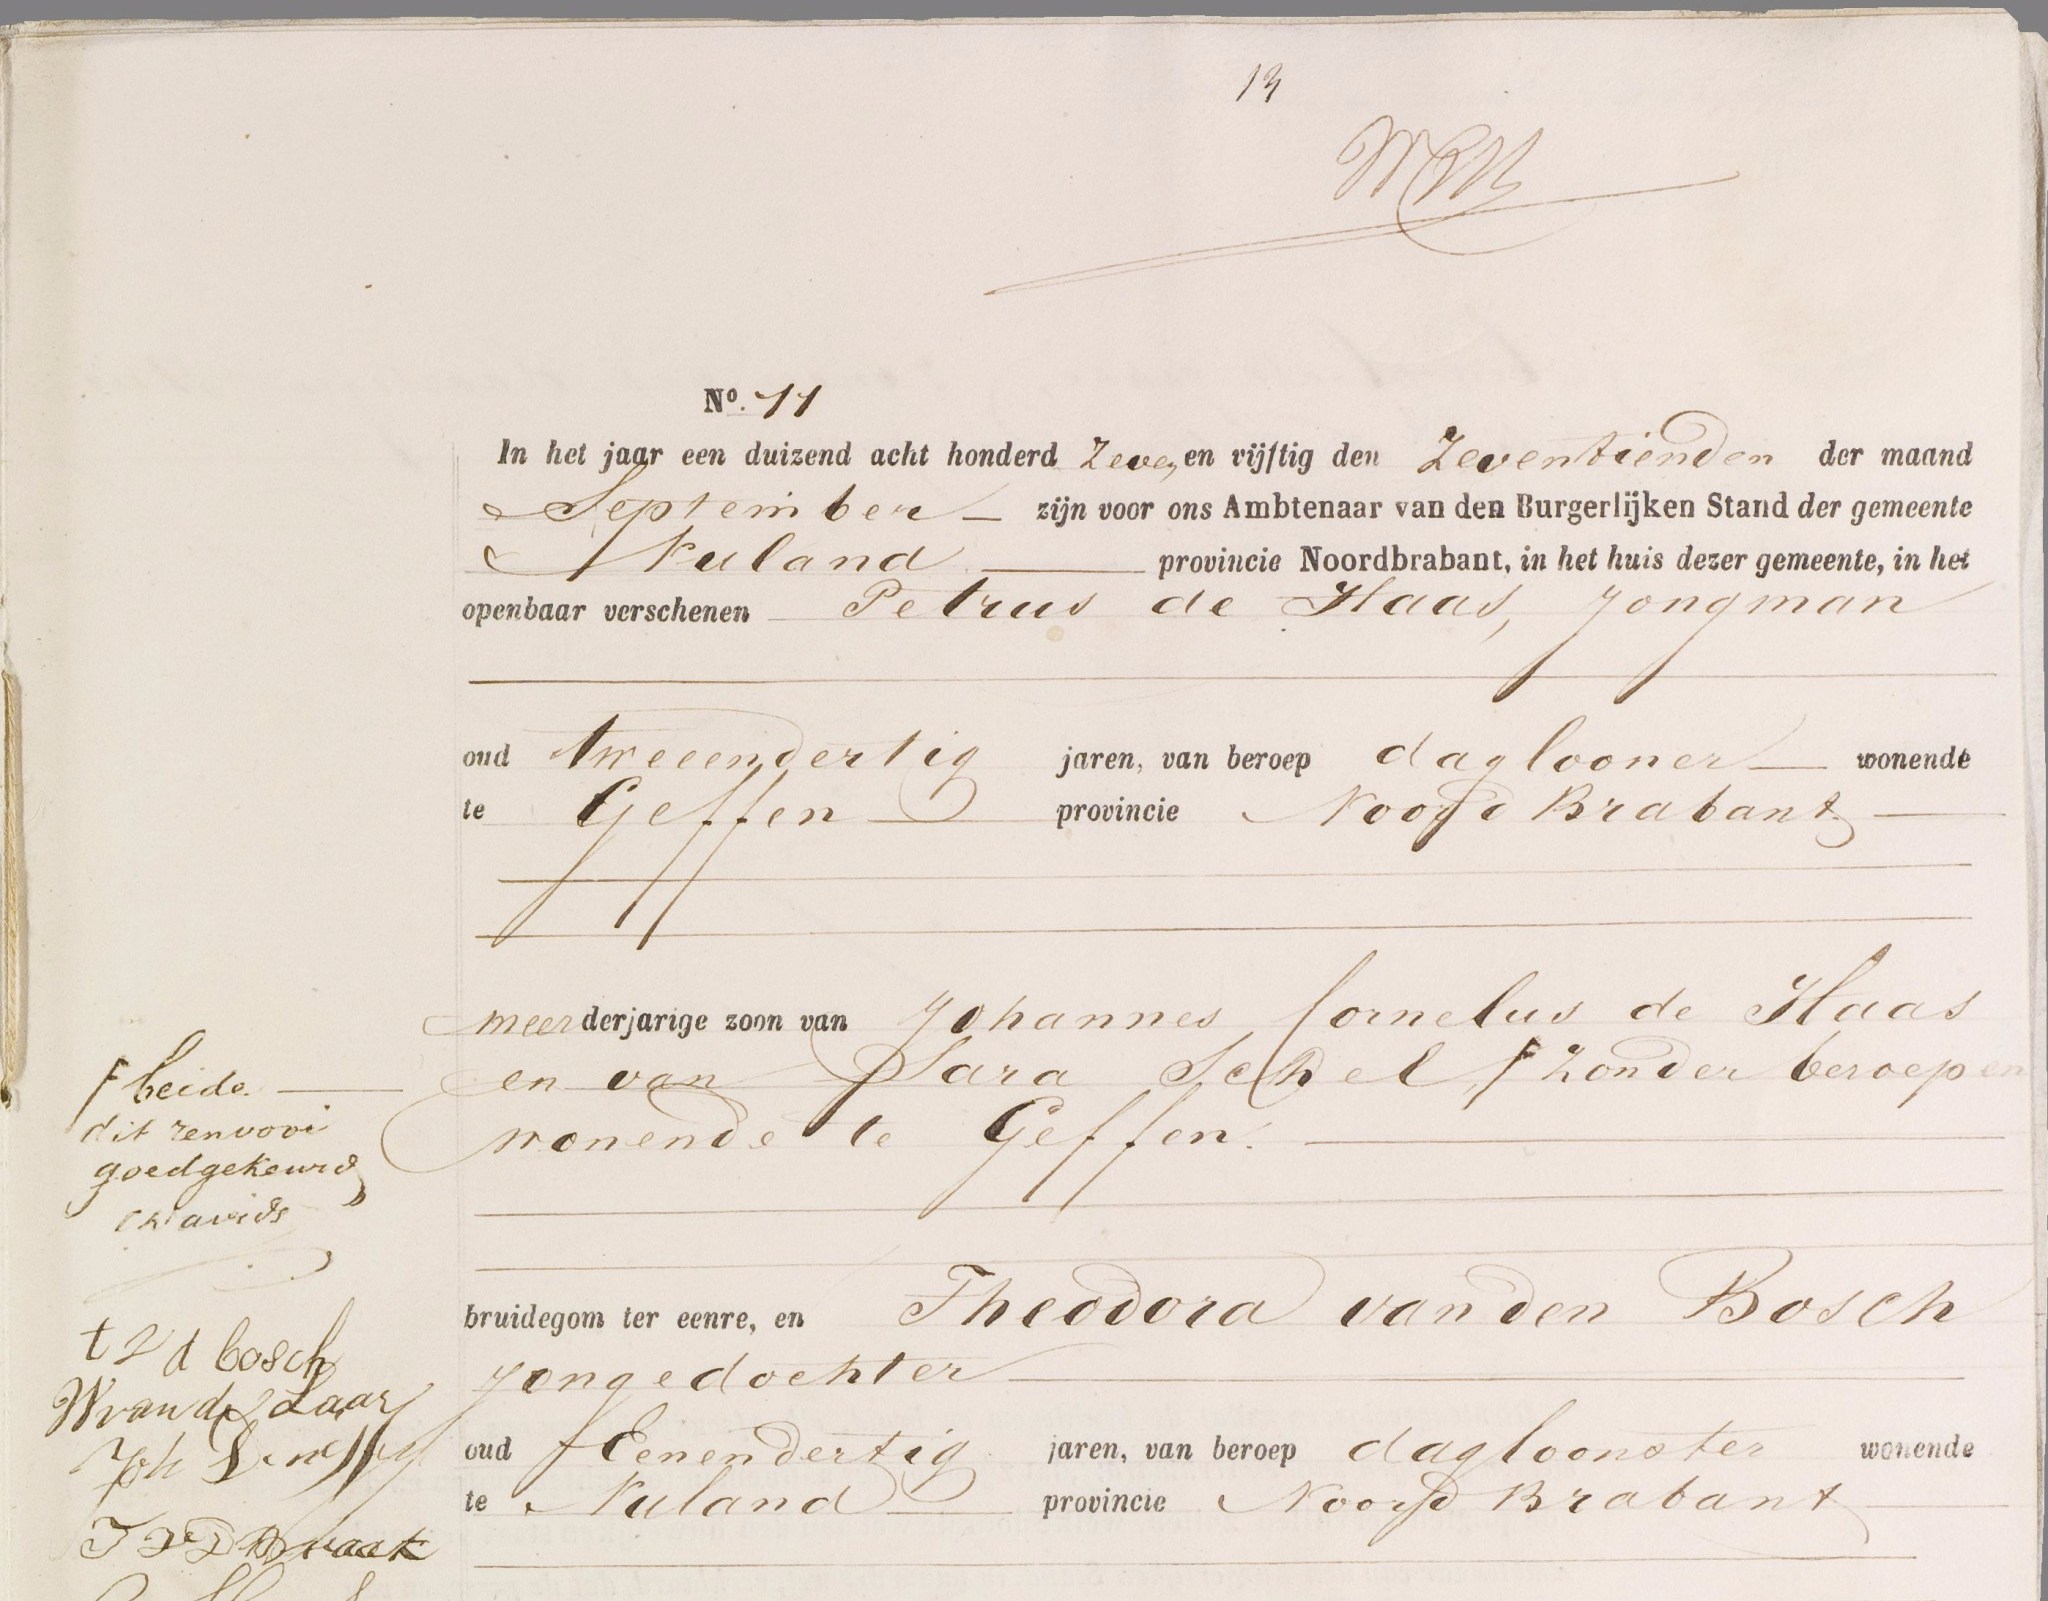 13
No. 11
In het jaar een duizend acht honderd Zeven en vijftig den Zeventienden der maand
September zijn voor ons Ambtenaar van den Burgerlijken Stand der gemeente
Nuland provincie Noordbrabant, in het huis dezer gemeente, in het
openbaar verschenen Petrus de Haas, jongman
oud tweeendertig jaren, van beroep daglooner wonende
te Geffen provincie Noord Brabant
meerderjarige zoon van Johannes Cornelus de Haas
en van Sara Schel, F zonder beroep en
wonende te Geffen.
F beide
dit renvooi
goedgekeurd
bruidegom ter eenre, en Theodora van den Bosch
jongedochter
oud Eenendertig jaren, van beroep dagloonster wonende
te Nuland provincie Noord Brabant
t v d bosch
W van de Laar
Joh